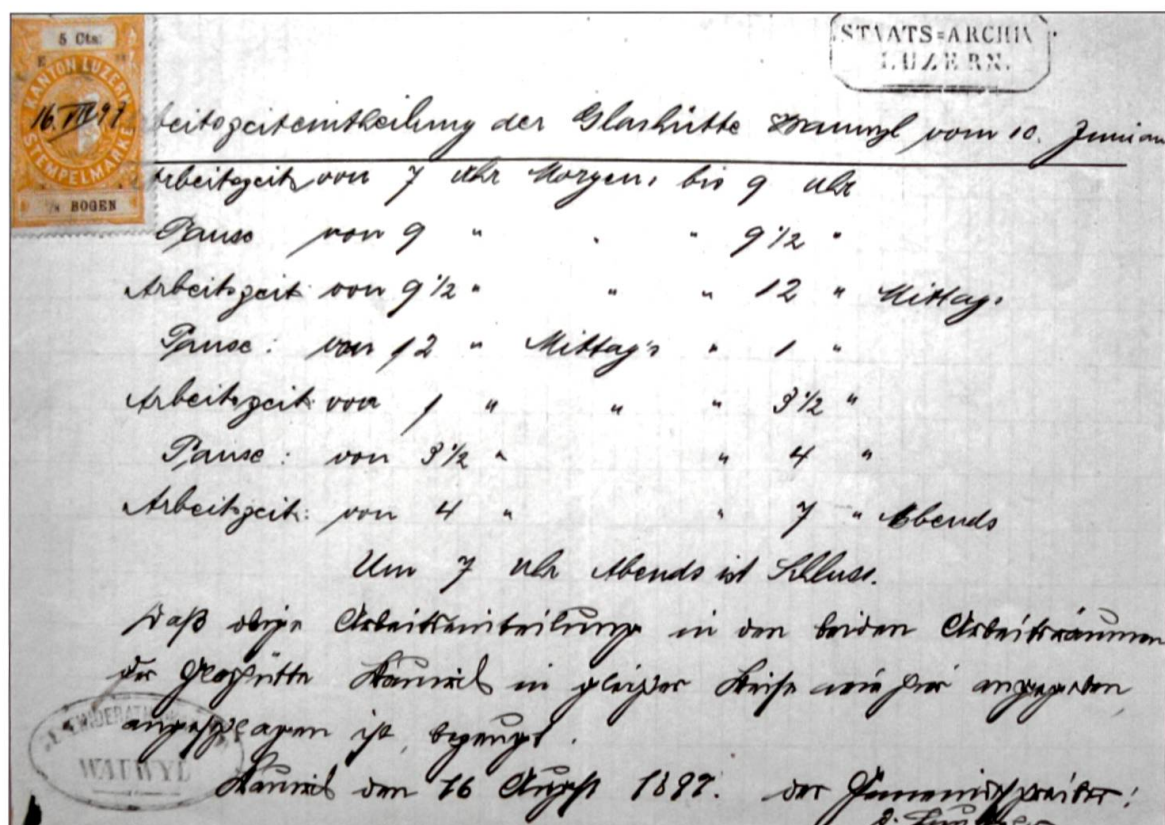 5 Cts.
KANTON LUZERN
STEMPELMARKE
16. VIII 97
1/2 BOGEN
STAATS=ARCHIV
LUZERN.
beitszeiteintheilung der Glashütte Wauwyl vom 10. Juni an
Arbeitszeit von 7 Uhr Morgens bis 9 Uhr
Pause von 9 " " " 9 1/2 "
Arbeitszeit von 9 1/2 " " " 12 " Mittags
Pause: von 12 " Mittag's " 1 "
Arbeitszeit von 1 " " " 3 1/2 "
Pause: von 3 1/2 " " 4 "
Arbeitszeit: von 4 " " 7 " Abends
Um 7 Uhr Abends ist Schluss.
Daß obige Arbeitseinteilung in den beiden Arbeitsräumen
der Glashütte Wauwil in gleicher Weise wie hier angegeben
angeschlagen ist, bezeugt.
GEMEINDERATH
WAUWYL
Wauwil den 16 August 1897. der Gemeindschreiber: